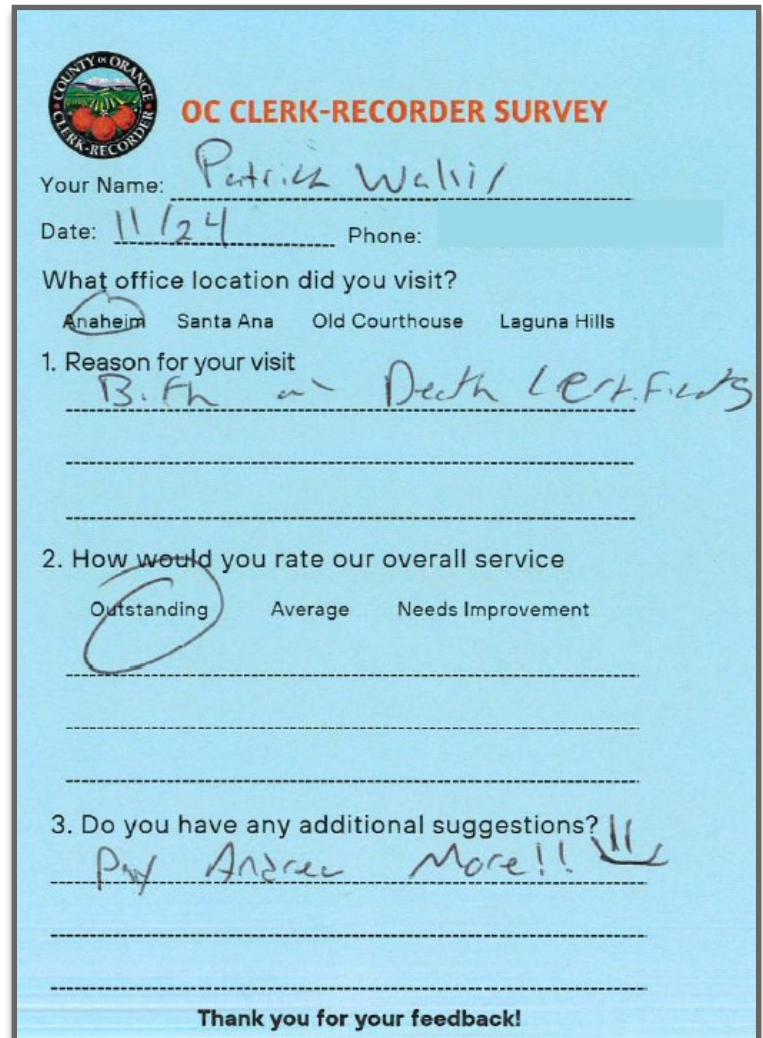 COUNTY OF ORANGE
CLERK-RECORDER
OC CLERK-RECORDER SURVEY
Your Name: Patrick
Date: 11/24 Phone:
What office location did you visit?
Anaheim Santa Ana Old Courthouse Laguna Hills
1. Reason for your visit
Birth Death Certificates
2. How would you rate our overall service
Outstanding Average Needs Improvement
3. Do you have any additional suggestions?
Pay Andrea More!!
Thank you for your feedback!